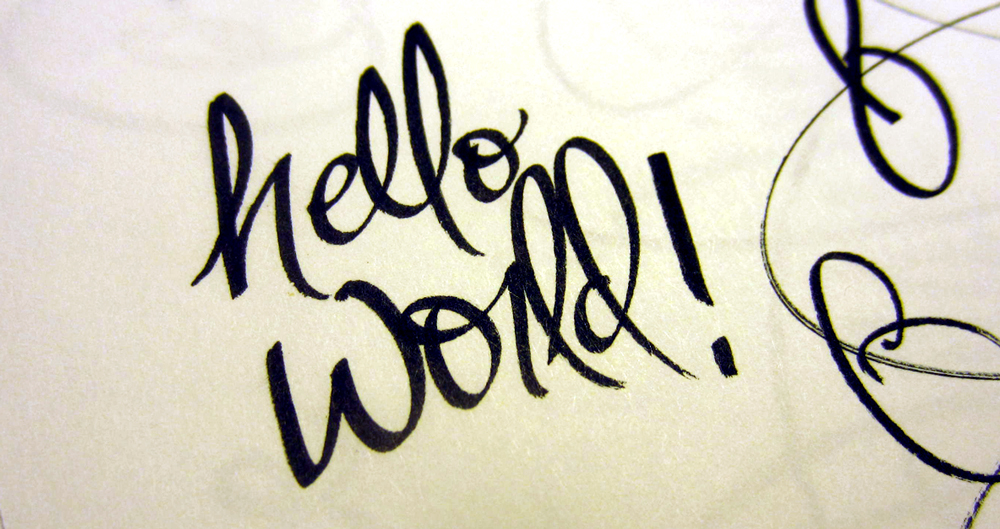 hello
world!